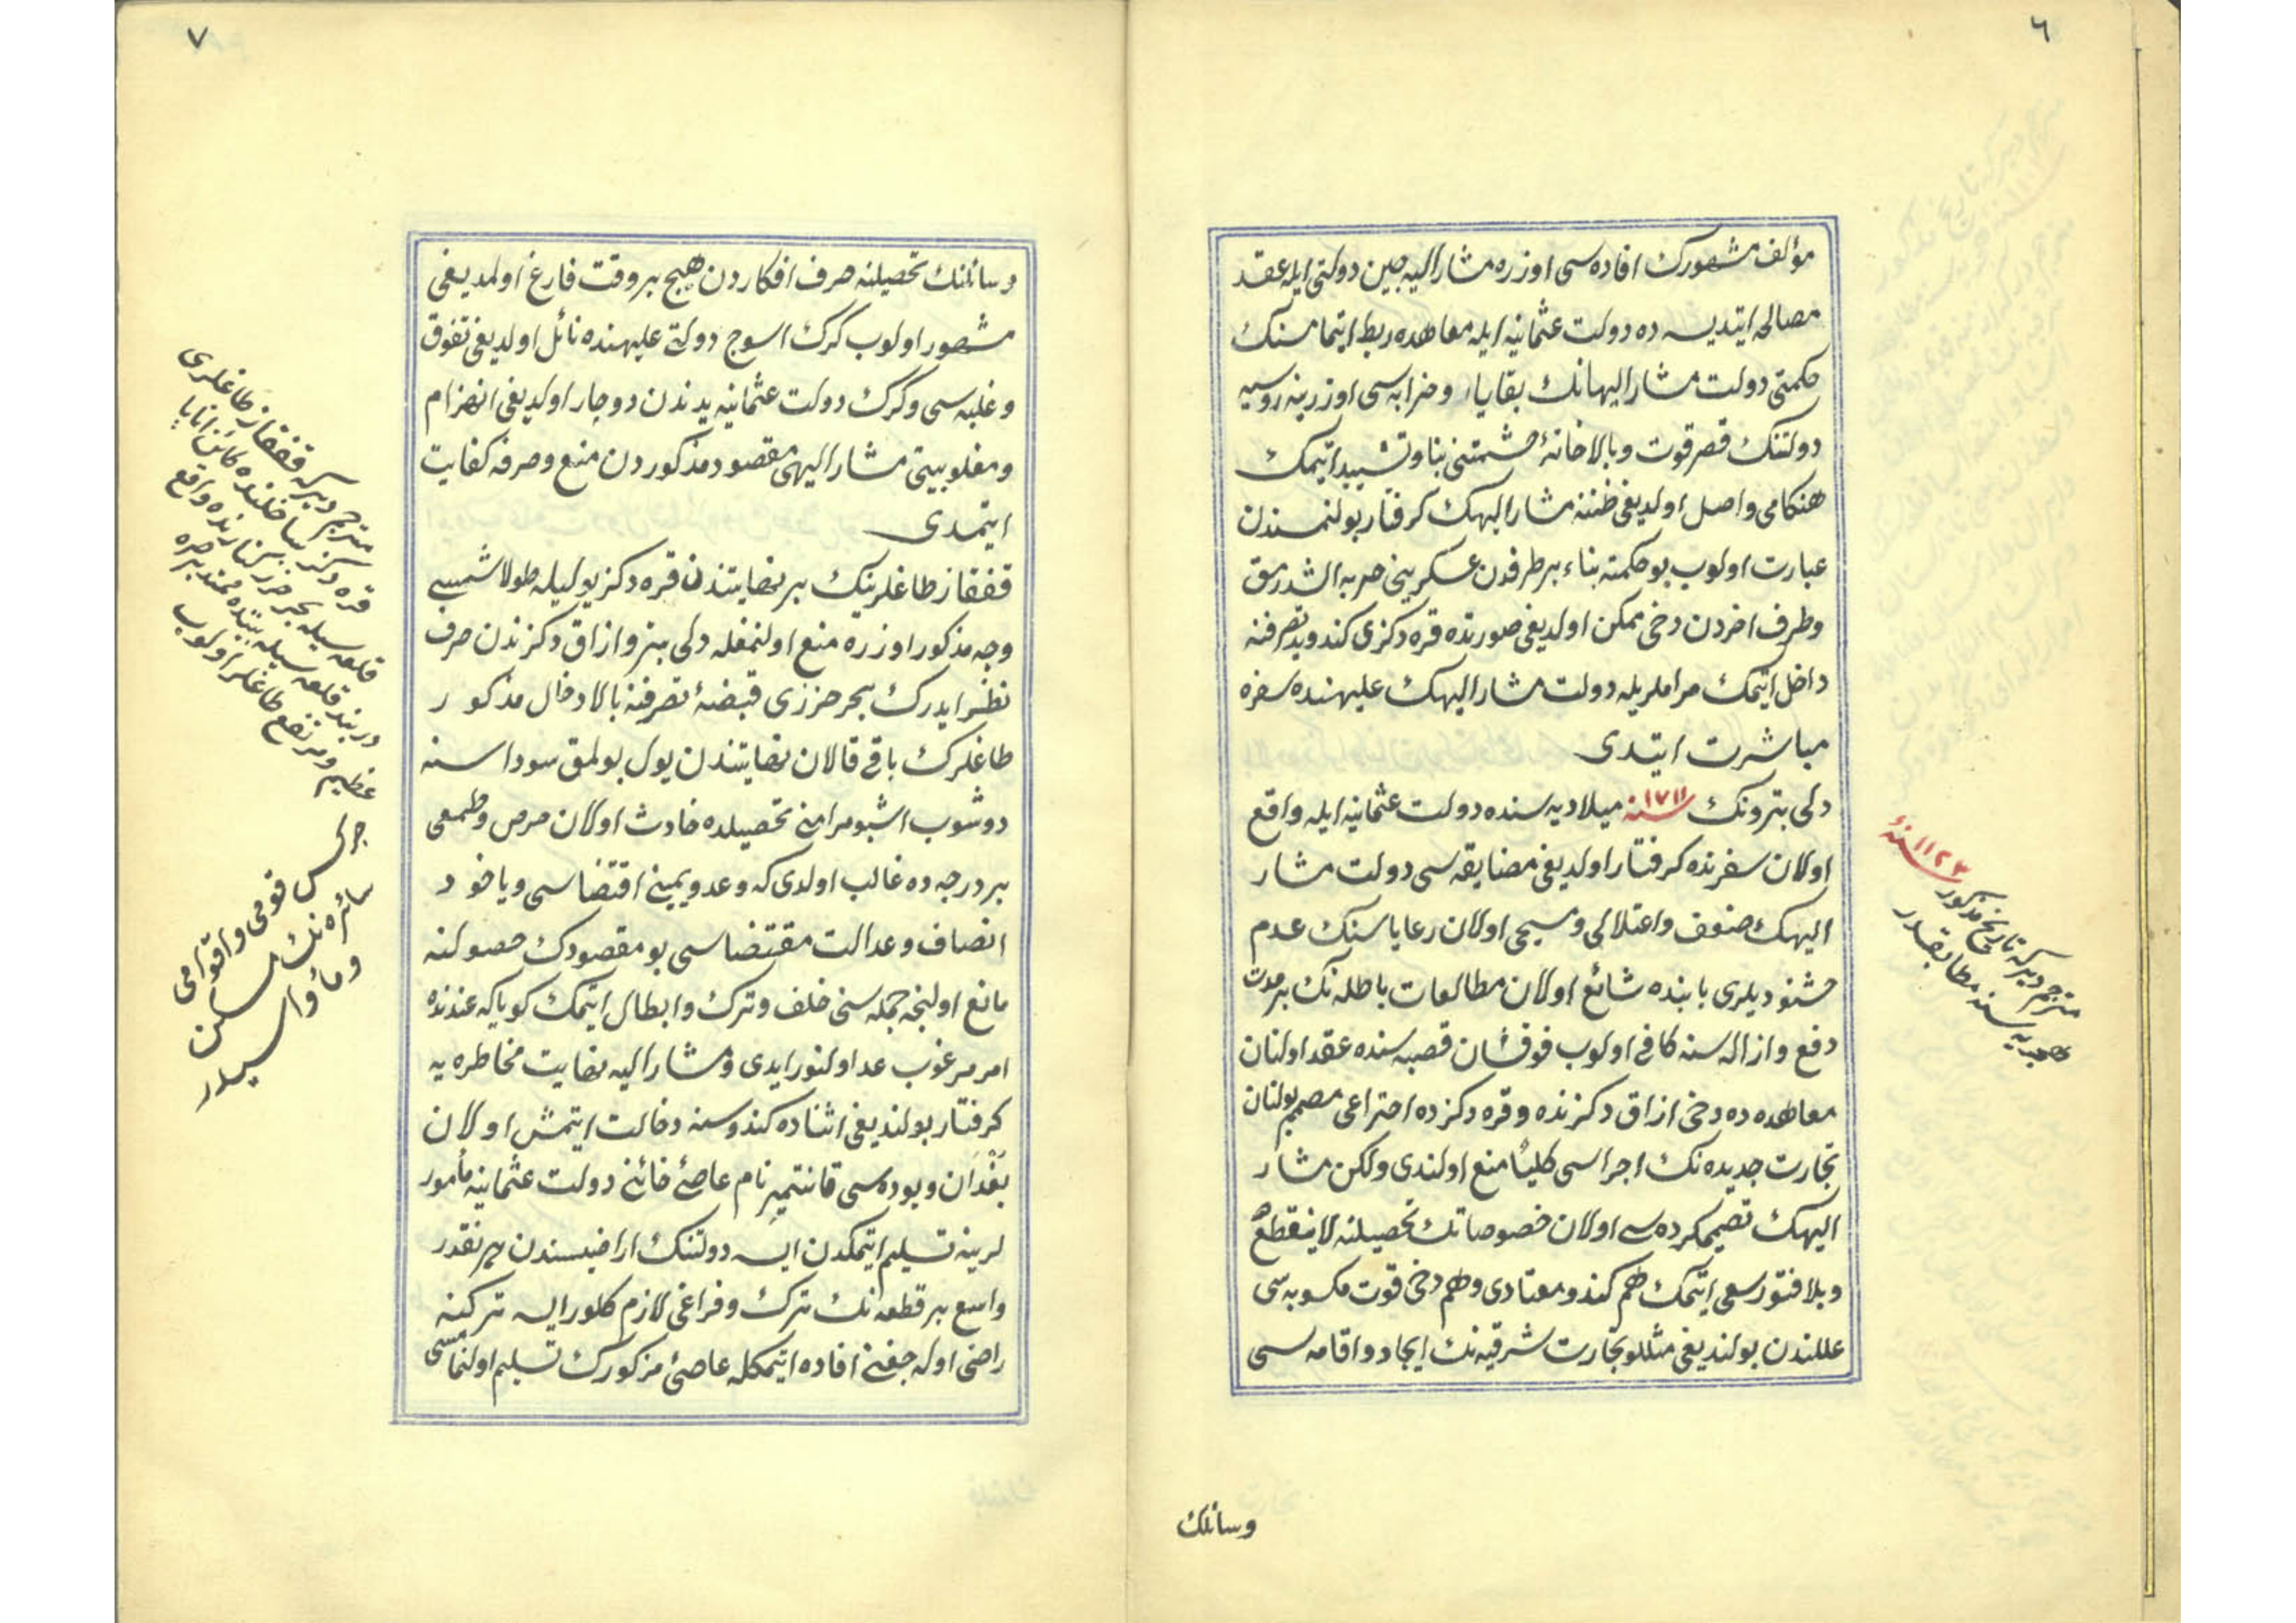 ٦
مؤلف مشهورك افاده سى اوزره مشار اليه چين دولتى ايله عقد
مصالحه ايتديسه ده دولت عثمانيه ايله معاهده ربط ايتمامسنك
حكمتى دولت مشار اليهانك بقايا و خرابه سى اوزرينه روسيه
دولتنك قصر قوت و بالاخانۀ حشمتنى بنا و تشييد ايتمك
هنكامى واصل اولديغى ظننه مشار اليهك كرفتار بولنمسندن
عبارت اولوب بو حكمته بناء بر طرفدن عسكرينى حربه الشدرمق
وطرف اخردن دخى ممكن اولديغى صورتده قره دكزى كندو يد تصرفنه
داخل ايتمك مراملريله دولت مشار اليهك عليهنده سفره
مباشرت ايتدى
دلى بترونك ١٧١١ سنه ميلاديه سنده دولت عثمانيه ايله واقع
اولان سفرنده كرفتار اولديغى مضايقه سى دولت مشار
اليهك ضعف واعتلالى ومسيحى اولان رعاياسنك عدم
خشنوديلرى بابنده شائع اولان مطالعات باطله نك بر مدت
دفع وازاله سنه كافى اولوب فوقشان قصبه سنده عقد اولنان
معاهده ده دخى ازاق دكزنده و قره دكزده اختراعى مصمم بولنان
تجارت جديده نك اجراسى كلياً منع اولندى ولكن مشار
اليهك تصميمكرده سى اولان خصوصاتك تحصيلنه لاينقطع
وبلا فتور سعى ايتمك هم كندو معتادى وهم دخى قوت مكسوبه سى
عللندن بولنديغى مثللو تجارت شرقيه نك ايجاد و اقامه سى
وسائلك
١١٢٣ سنۀ
مترجم ديركه تاريخ مذكور
هجريه سنه مطابقدر
٧
وسائلنك تحصيلنه صرف افكاردن هيچ بر وقت فارغ اولمديغى
مشهور اولوب كرك اسوج دولتى عليهنده نائل اولديغى تفوق
وغلبه سى وكرك دولت عثمانيه يدندن دوچار اولديغى انهزام
ومغلوبيتى مشار اليهى مقصود مذكوردن منع وصرفه كفايت
ايتمدى
قفقاز طاغلرينك بر نهايتندن قره دكز يوليله طولاشمسى
وجه مذكور اوزره منع اولنمغله دلى بترو ازاق دكزندن صرف
نظر ايدرك بحر خزرى قبضۀ تصرفنه بالادخال مذكور
طاغلرك باقى قالان نهايتندن يول بولمق سوداسنه
دوشوب اشبو مرامنى تحصيلده حادث اولان حرص وطمعى
بر درجه ده غالب اولدى كه وعد و يمينى اقتضاسى وياخود
انصاف وعدالت مقتضاسى بو مقصودك حصولنه
مانع اولنجه جمله سنى خلف وترك وابطال ايتمك كويا كه عندنده
امر مرغوب عد اولنور ايدى و مشار اليه نهايت مخاطره يه
كرفتار بولنديغى اثناده كندوسنه دخالت ايتمش اولان
بغدان ويوده سى قانتمير نام عاصئ خائنى دولت عثمانيه مأمور
لرينه تسليم ايتمكدن ايسه دولتنك اراضيسندن هر نقدر
واسع بر قطعه نك ترك و فراغى لازم كلور ايسه تركنه
راضى اوله جغنى افاده ايتمكله عاصئ مزكورك تسليم اولنمامسى
مترجم ديركه قفقاز طاغلرى
قره دكز ساحلنده كائن انابا
قلعه سيله بحر خزر كنارنده واقع
دربند قلعه سيله بيننده ممتد بر صره
عظيم ومرتفع طاغلر اولوب
چركس قومى واقوام
سائره نك مسكن
ومأواسيدر